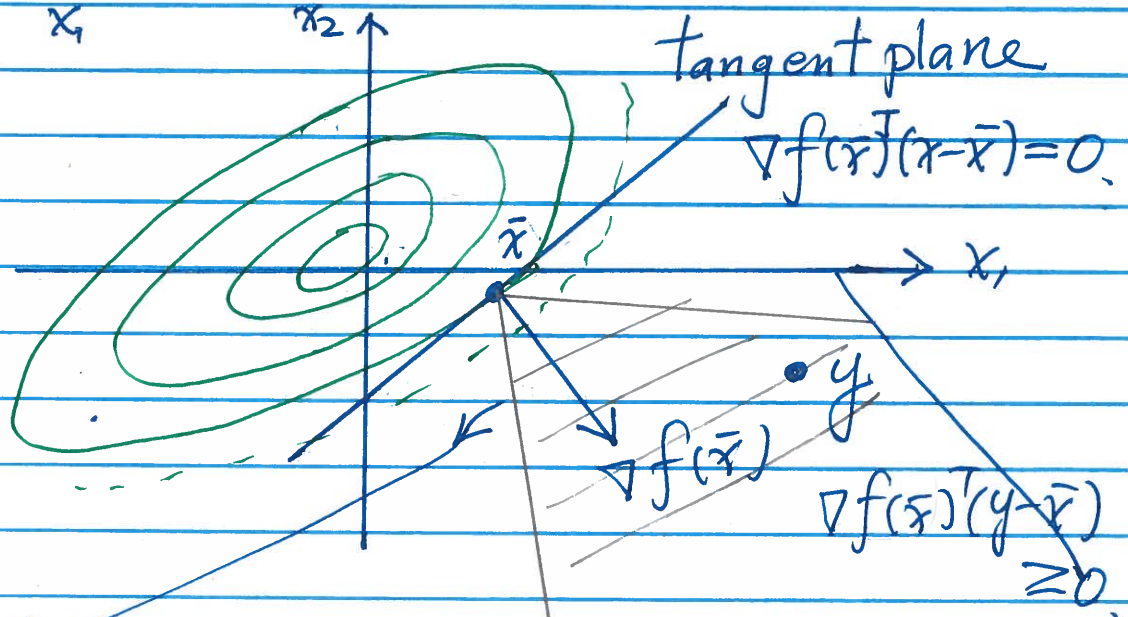 x₁
x₂
tangent plane
∇f(x̄)ᵀ(x-x̄)=0.
x̄
x₁
y
∇f(x̄)
∇f(x̄)ᵀ(y-x̄)
≥0